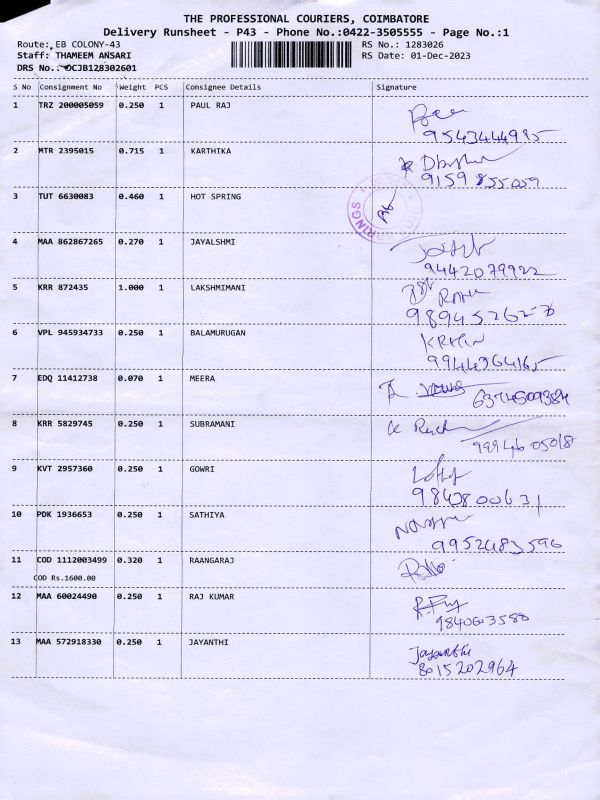 THE PROFESSIONAL COURIERS, COIMBATORE
Delivery Runsheet - P43 - Phone No.:0422-3505555 - Page No.:1
Route: EB COLONY-43 RS No.: 1283026
Staff: THAMEEM ANSARI RS Date: 01-Dec-2023
DRS No.: OCJB128302601
S No Consignment No Weight PCS Consignee Details Signature
1 TRZ 200005059 0.250 1 PAUL RAJ
9543444995
2 MTR 2395015 0.715 1 KARTHIKA
9159855059
3 TUT 6630083 0.460 1 HOT SPRING
4 MAA 862867265 0.270 1 JAYALSHMI
9442079922
5 KRR 872435 1.000 1 LAKSHMIMANI
6 VPL 945934733 0.250 1 BALAMURUGAN
7 EDQ 11412738 0.070 1 MEERA
8 KRR 5829745 0.250 1 SUBRAMANI
9 KVT 2957360 0.250 1 GOWRI
10 PDK 1936653 0.250 1 SATHIYA
9952483596
11 COD 1112003499 0.320 1 RAANGARAJ
COD Rs.1600.00
12 MAA 60024490 0.250 1 RAJ KUMAR
9840603588
13 MAA 572918330 0.250 1 JAYANTHI
Jayanthi
8015202964